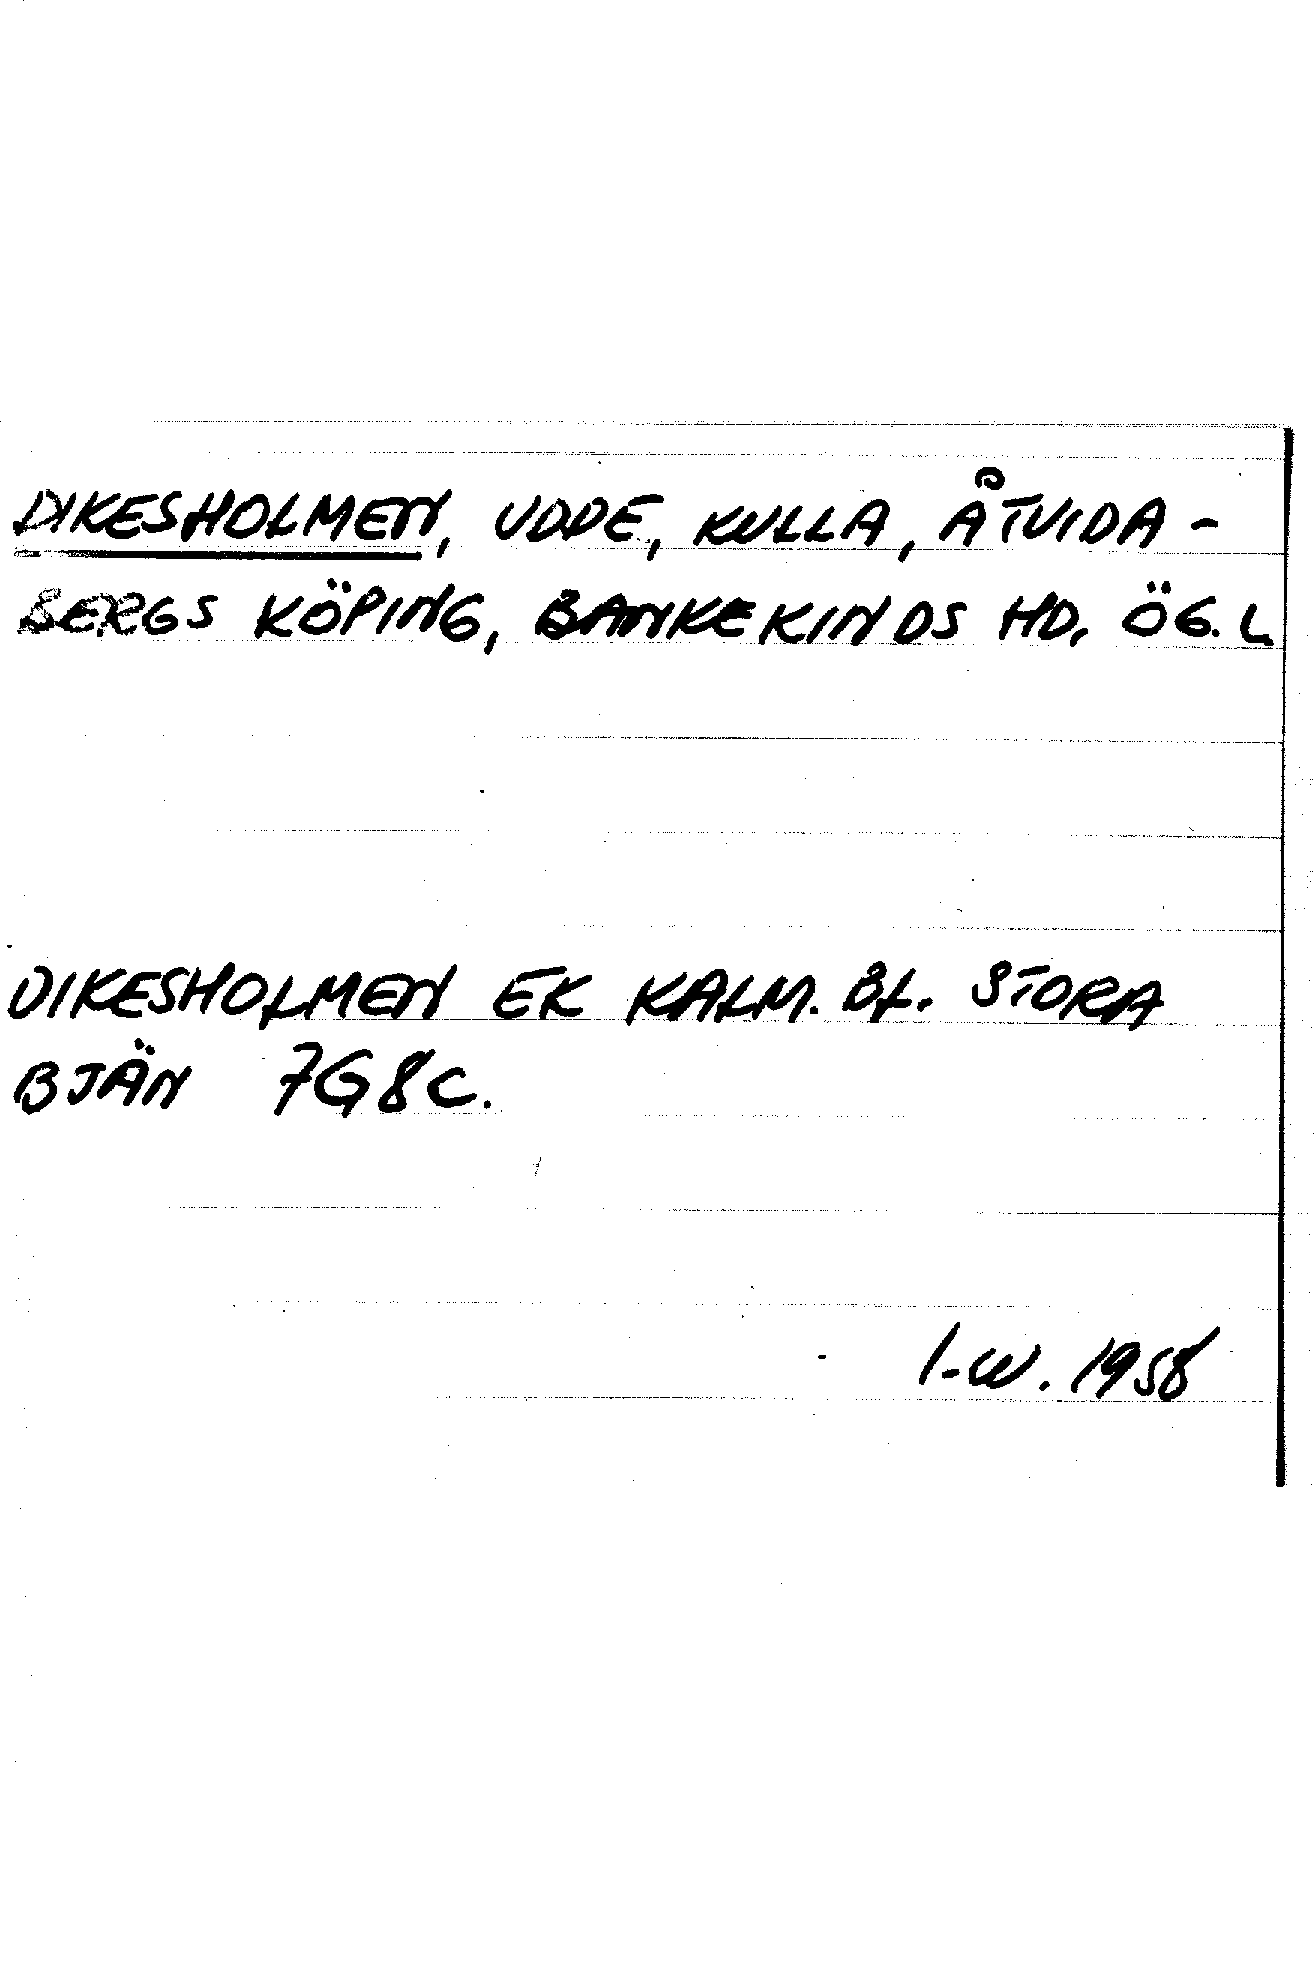 DIKESHOLMEN, UDDE, KULLA, ÅTVIDA-
BERGS KÖPING, BANKEKINDS HD, ÖG. L
DIKESHOLMEN EK KALM. BL. STORA
BJÄN 7G8C.
I-W. 1958